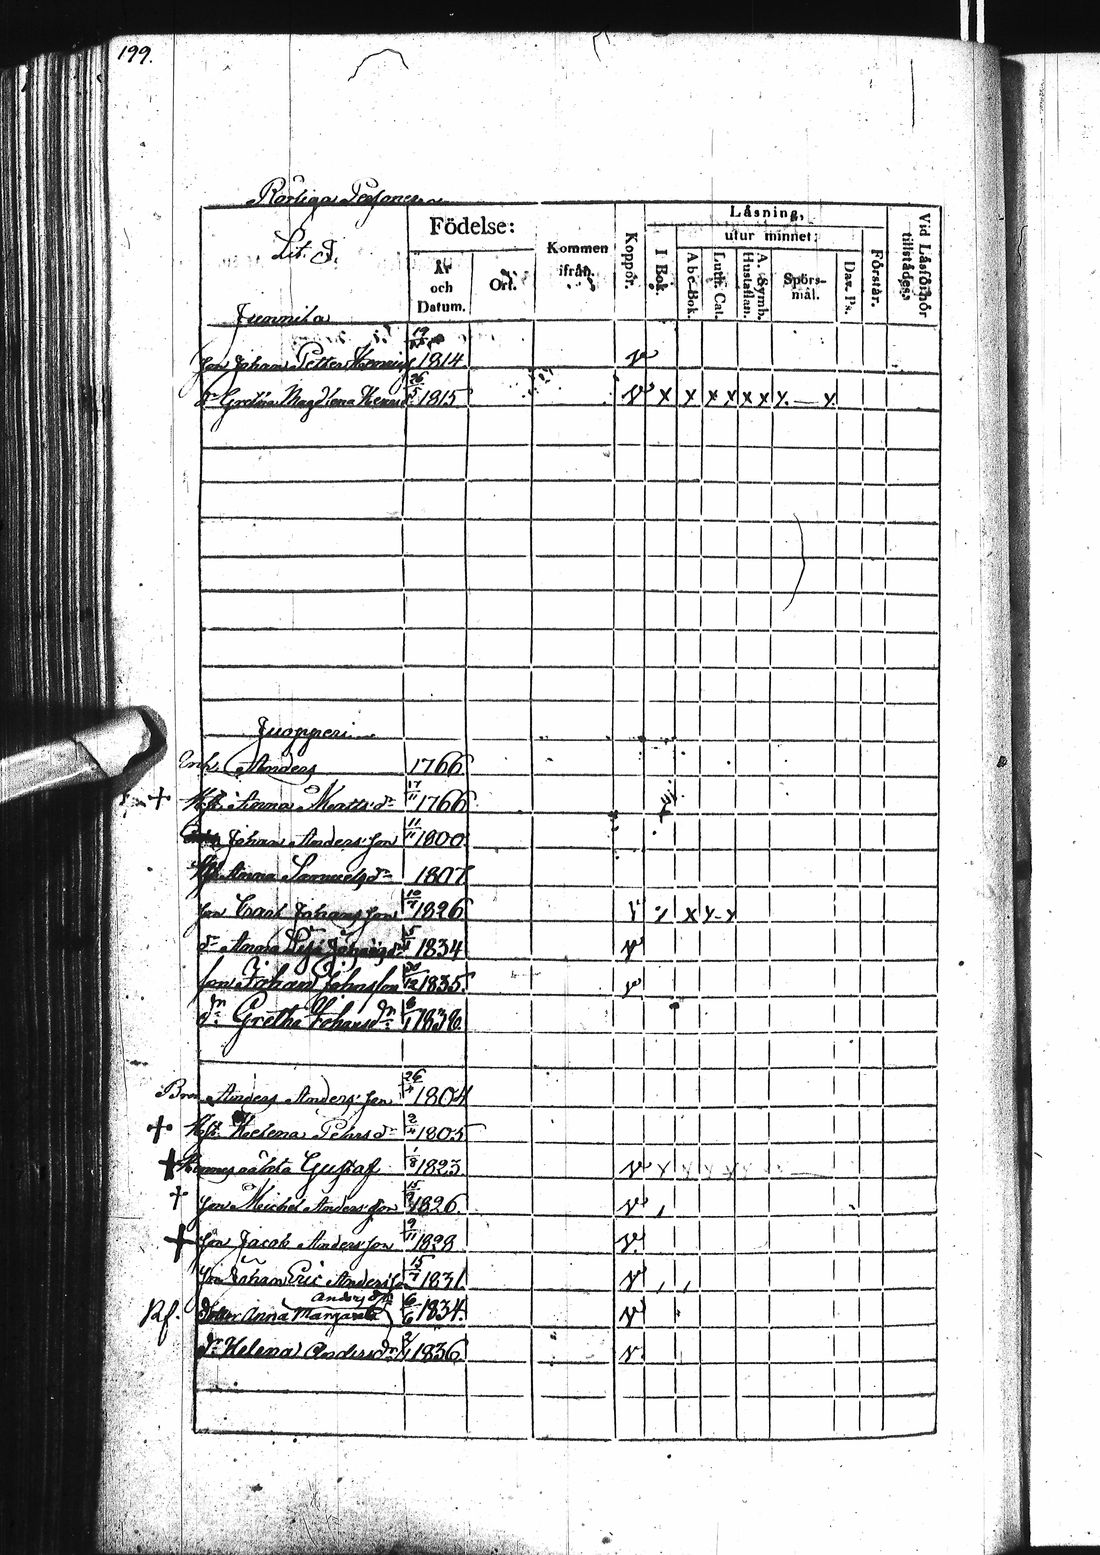 199.
Rörliga Personer
Lit. J.
Födelse:
År och Datum.
Ort.
Kommen ifrån.
Koppor.
Läsning,
I Bok.
utur minnet:
Abc-Bok.
Luth. Cat.
A. Symb. Hustaflan.
Spörs-mål.
Dav. Ps.
Förstår.
Vid Läsförhör tillstädes.
Junnila
Son Johan Petter 19 1814 v
dr Greta Magdlena 26/5 1815 v x x x x x x x — x
Juopperi
Enkl. Anders 1766
Hst. Anna Mattsdr 17/11 1766
Johan Andersson 11/11 1800
Hst Anna Samuelsdr 1807
Son Carl Johansson 10/7 1826 v x x x - x
dr Anna Lisa Johansdr 1834 v
son Johan Johansson 20/12 1835 v
dr Gretha Johansdr 6/1 1838
Bror Anders Andersson 26 1804
Hst. Helena Pehrsdr 2/4 1805
oäkta Gustaf 1/8 1823 v x x x x x x
Son Michel Andersson 1826 v
Son Jacob Andersson 9/11 1828 v
Son Johan Eric Andersson 15/7 1831 v
Rf. Dotter Anna Margareta Andersdr 6/6 1834 v
dr Helena Andersdr 1836 v